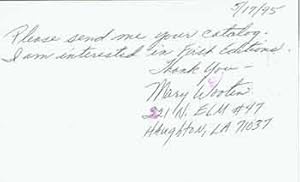 5/17/95
Please send me your catalog.
I am interested in First Editions.
Thank You -
Mary Wooten
221 N. ELM #47
Haughton, LA 71037